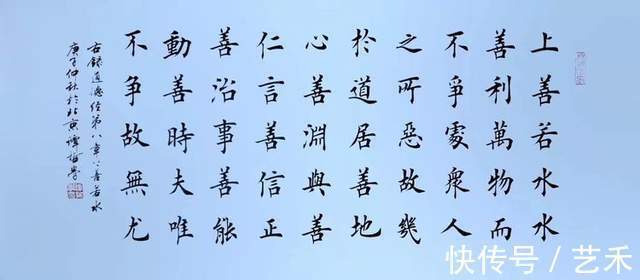 上善若水水
善利萬物而
不爭處衆人
之所惡故幾
於道居善地
心善淵與善
仁言善信正
善治事善能
動善時夫唯
不争故無尤
右錄道德经第八章上善若水
庚子仲秋於北京
快传号 / 艺禾